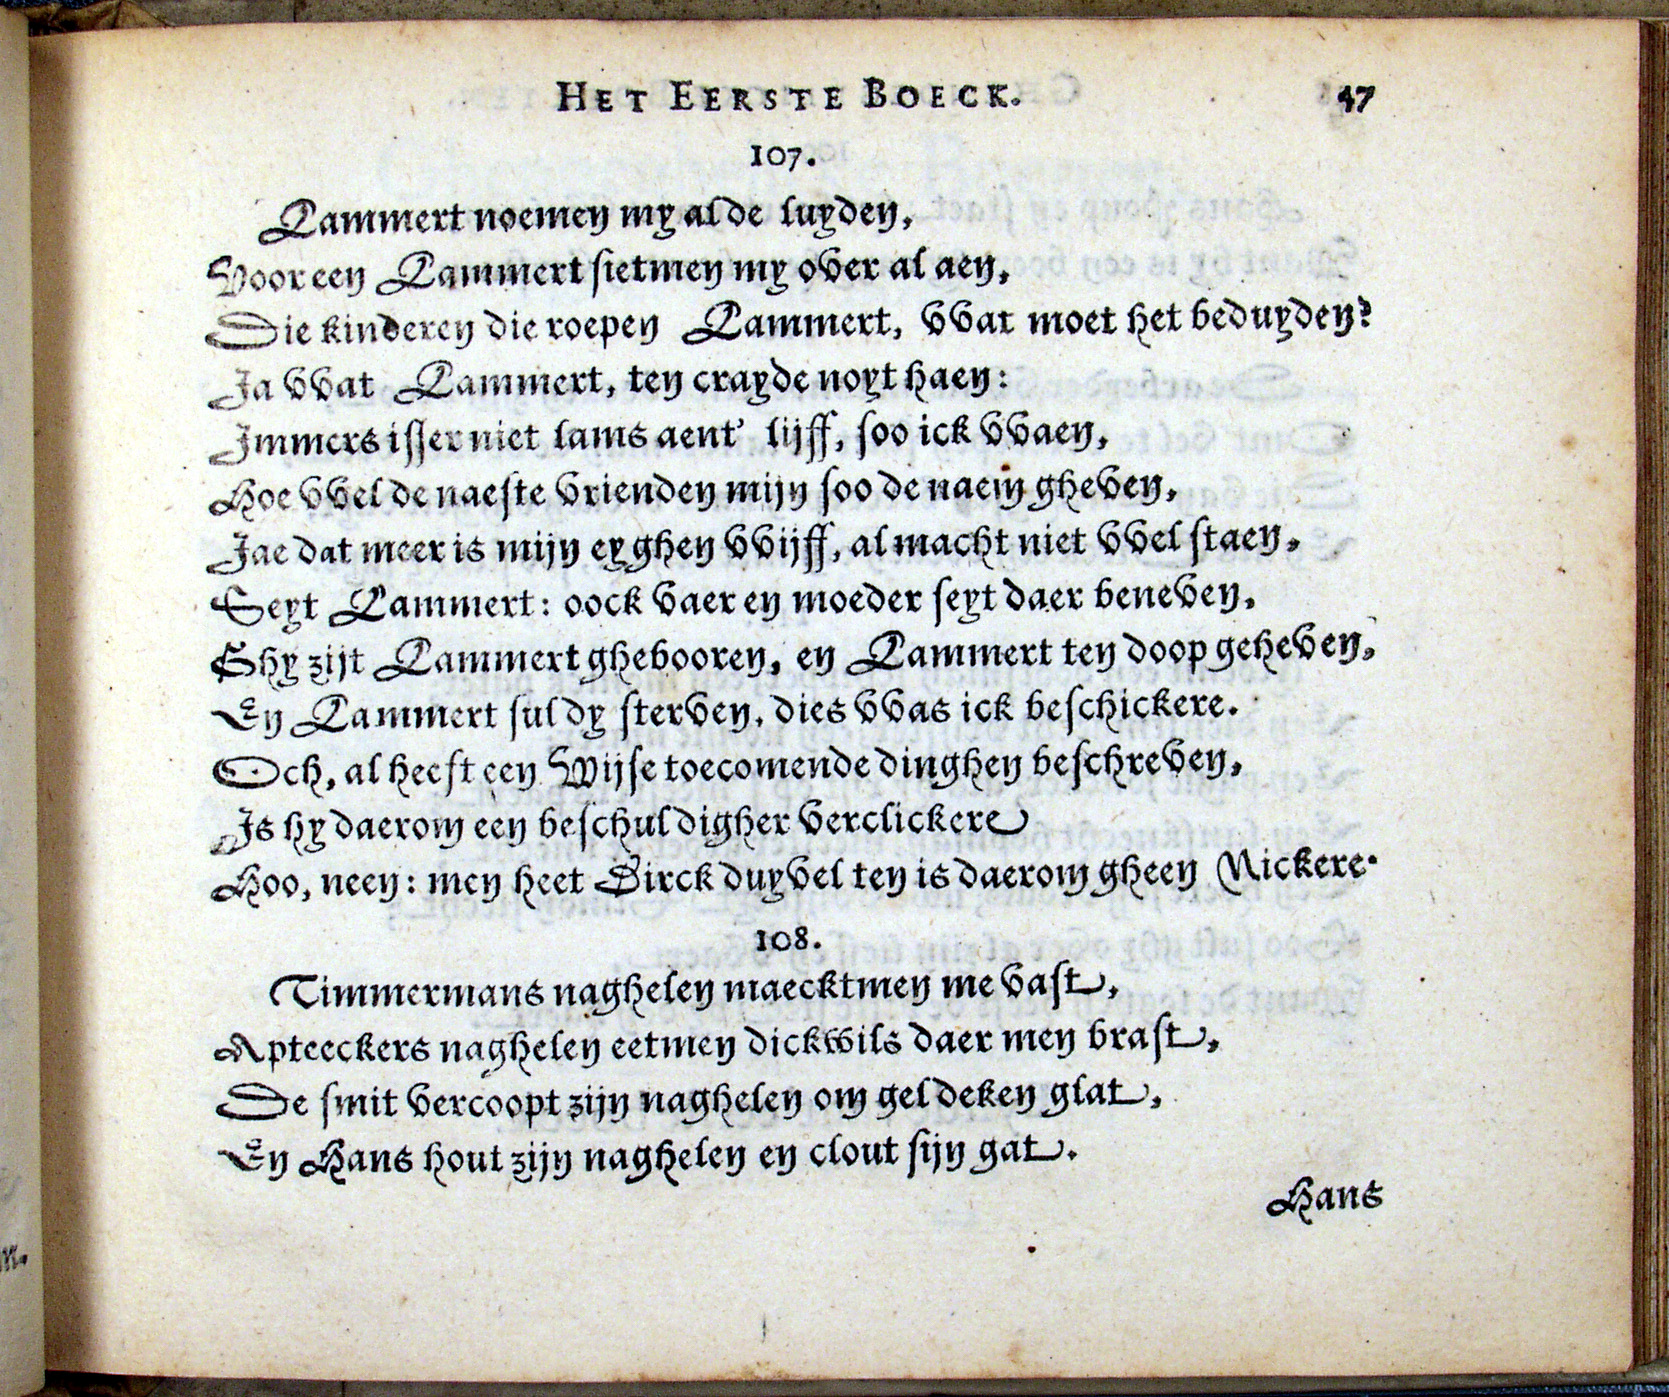 HET EERSTE BOECK. 47
107.
Lammert noemen my al de luyden,
Voor een Lammert sietmen my over al aen,
Die kinderen die roepen Lammert, vvat moet het beduyden?
Ja vvat Lammert, ten crayde noyt haen:
Jmmers isser niet lams aent' lijff, soo ick vvaen,
Hoe vvel de naeste vrienden mijn soo de naem gheven,
Jae dat meer is mijn eyghen vvijff, al macht niet vvel staen,
Seyt Lammert: oock vaer en moeder seyt daer beneven,
Ghy zijt Lammert ghebooren, en Lammert ten doop geheven,
En Lammert suldy sterven, dies vvas ick beschickere.
Och, al heeft een Wijse toecomende dinghen beschreven,
Js hy daerom een beschuldigher verclickere
Hoo, neen: men heet Dirck duyvel ten is daerom gheen Nickere.
108.
Timmermans naghelen maecktmen me vast,
Apteeckers naghelen eetmen dickwils daer men brast,
De smit vercoopt zijn naghelen om geldeken glat,
En Hans hout zijn naghelen en clout sijn gat.
Hans
n.